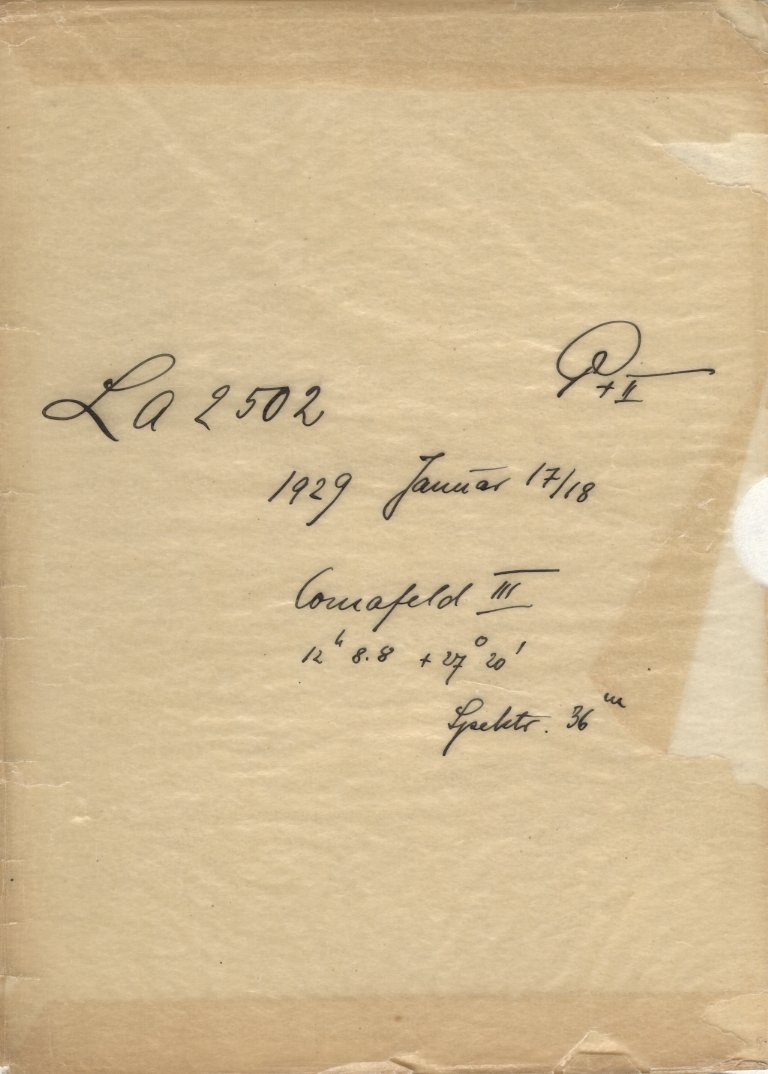 La 2502
1929 Januar 17/18
Comafeld III
12ʰ 8.8 +27° 20'
Spektr. 36ᵐ